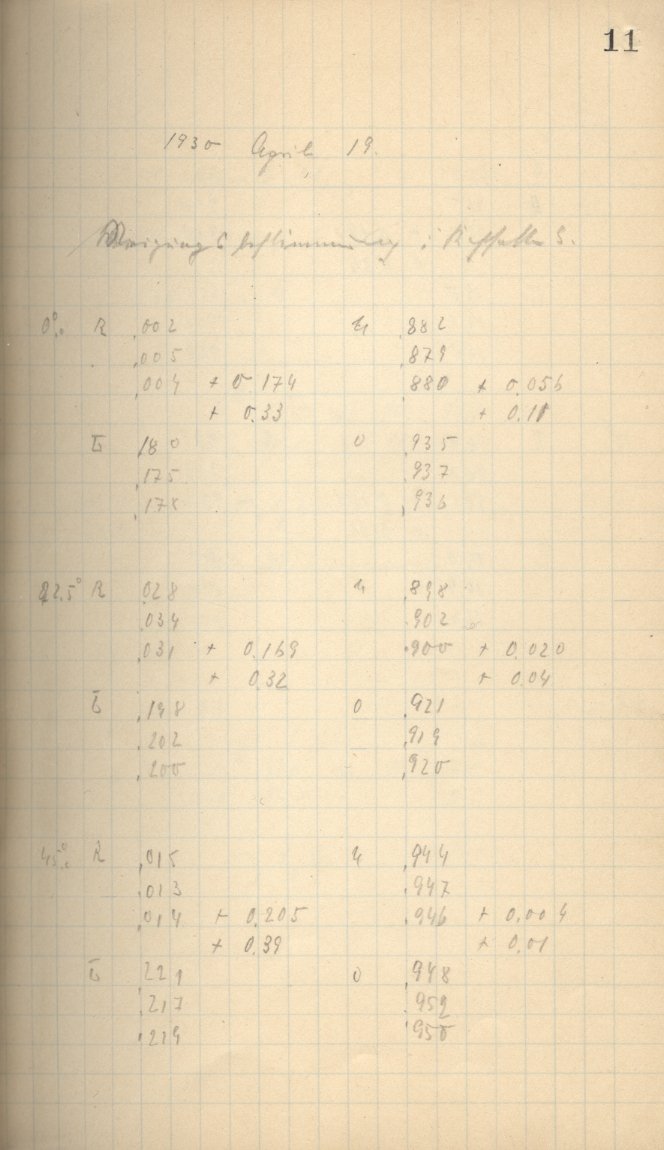 11
1930 April 19.
Neigungsbestimmung i
0° R ,002 u ,882
,005 ,879
,004 + 0.174 ,880 + 0.056
+ 0.33 + 0.11
L 180 0 ,935
,175 ,937
,178 ,936
22.5° R ,028 u ,898
,034 ,902
,031 + 0.169 ,900 + 0.020
+ 0.32 + 0.04
L ,198 0 ,921
,202 ,919
,200 ,920
45° R ,015 u ,944
,013 ,947
,014 + 0.205 ,946 + 0.004
+ 0.39 + 0.01
L ,221 0 ,948
,217 ,952
,219 ,950